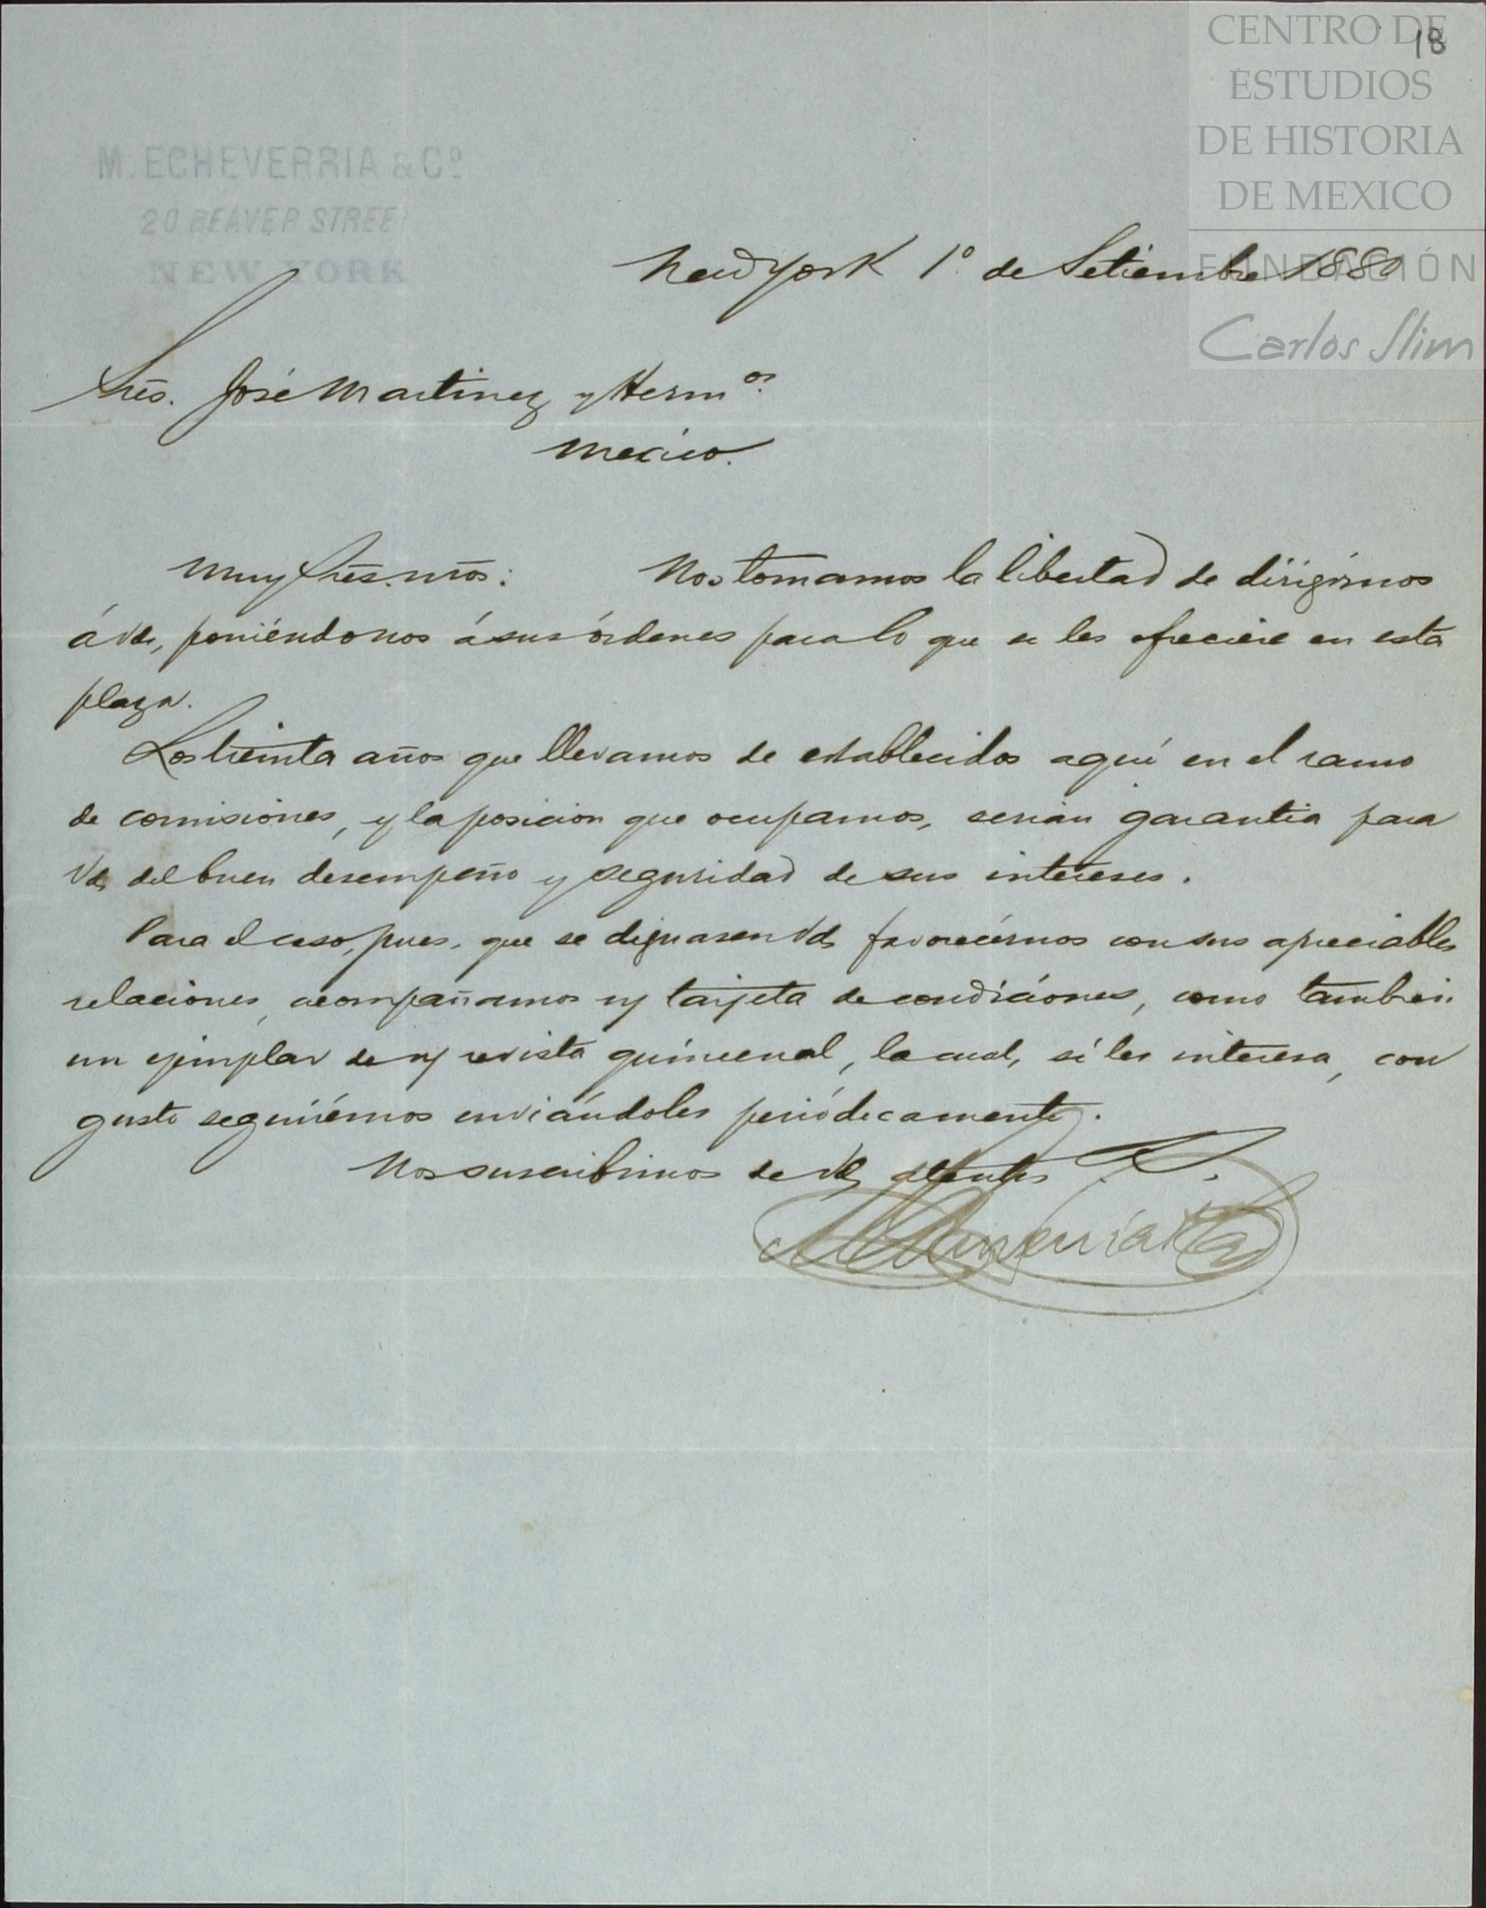 18
CENTRO DE
ESTUDIOS
DE HISTORIA
DE MEXICO
FUNDACIÓN
Carlos Slim
M. ECHEVERRIA & Cº
20 BEAVER STREET
NEW YORK
New York 1º de Setiembre 1880
Sres. José Martinez y Hermos.
Mexico.
Muy Sres. nros: Nos tomamos la libertad de dirigirnos
á Vds, poniéndonos á sus órdenes para lo que se les ofreciere en esta
plaza.
Los treinta años que llevamos de establecidos aquí en el ramo
de comisiones, y la posicion que ocupamos, serian garantia para
Vds del buen desempeño y seguridad de sus intereses.
Para el caso, pues, que se dignasen Vds favorecérnos con sus apreciables
relaciones, acompañamos n/ tarjeta de condiciones, como tambien
un ejemplar de n/ revista quincenal, la cual, si les interesa, con
gusto seguirémos enviándoles periódicamente.
Nos suscribimos de Vds atentos S. S.
M Echeverria & Co